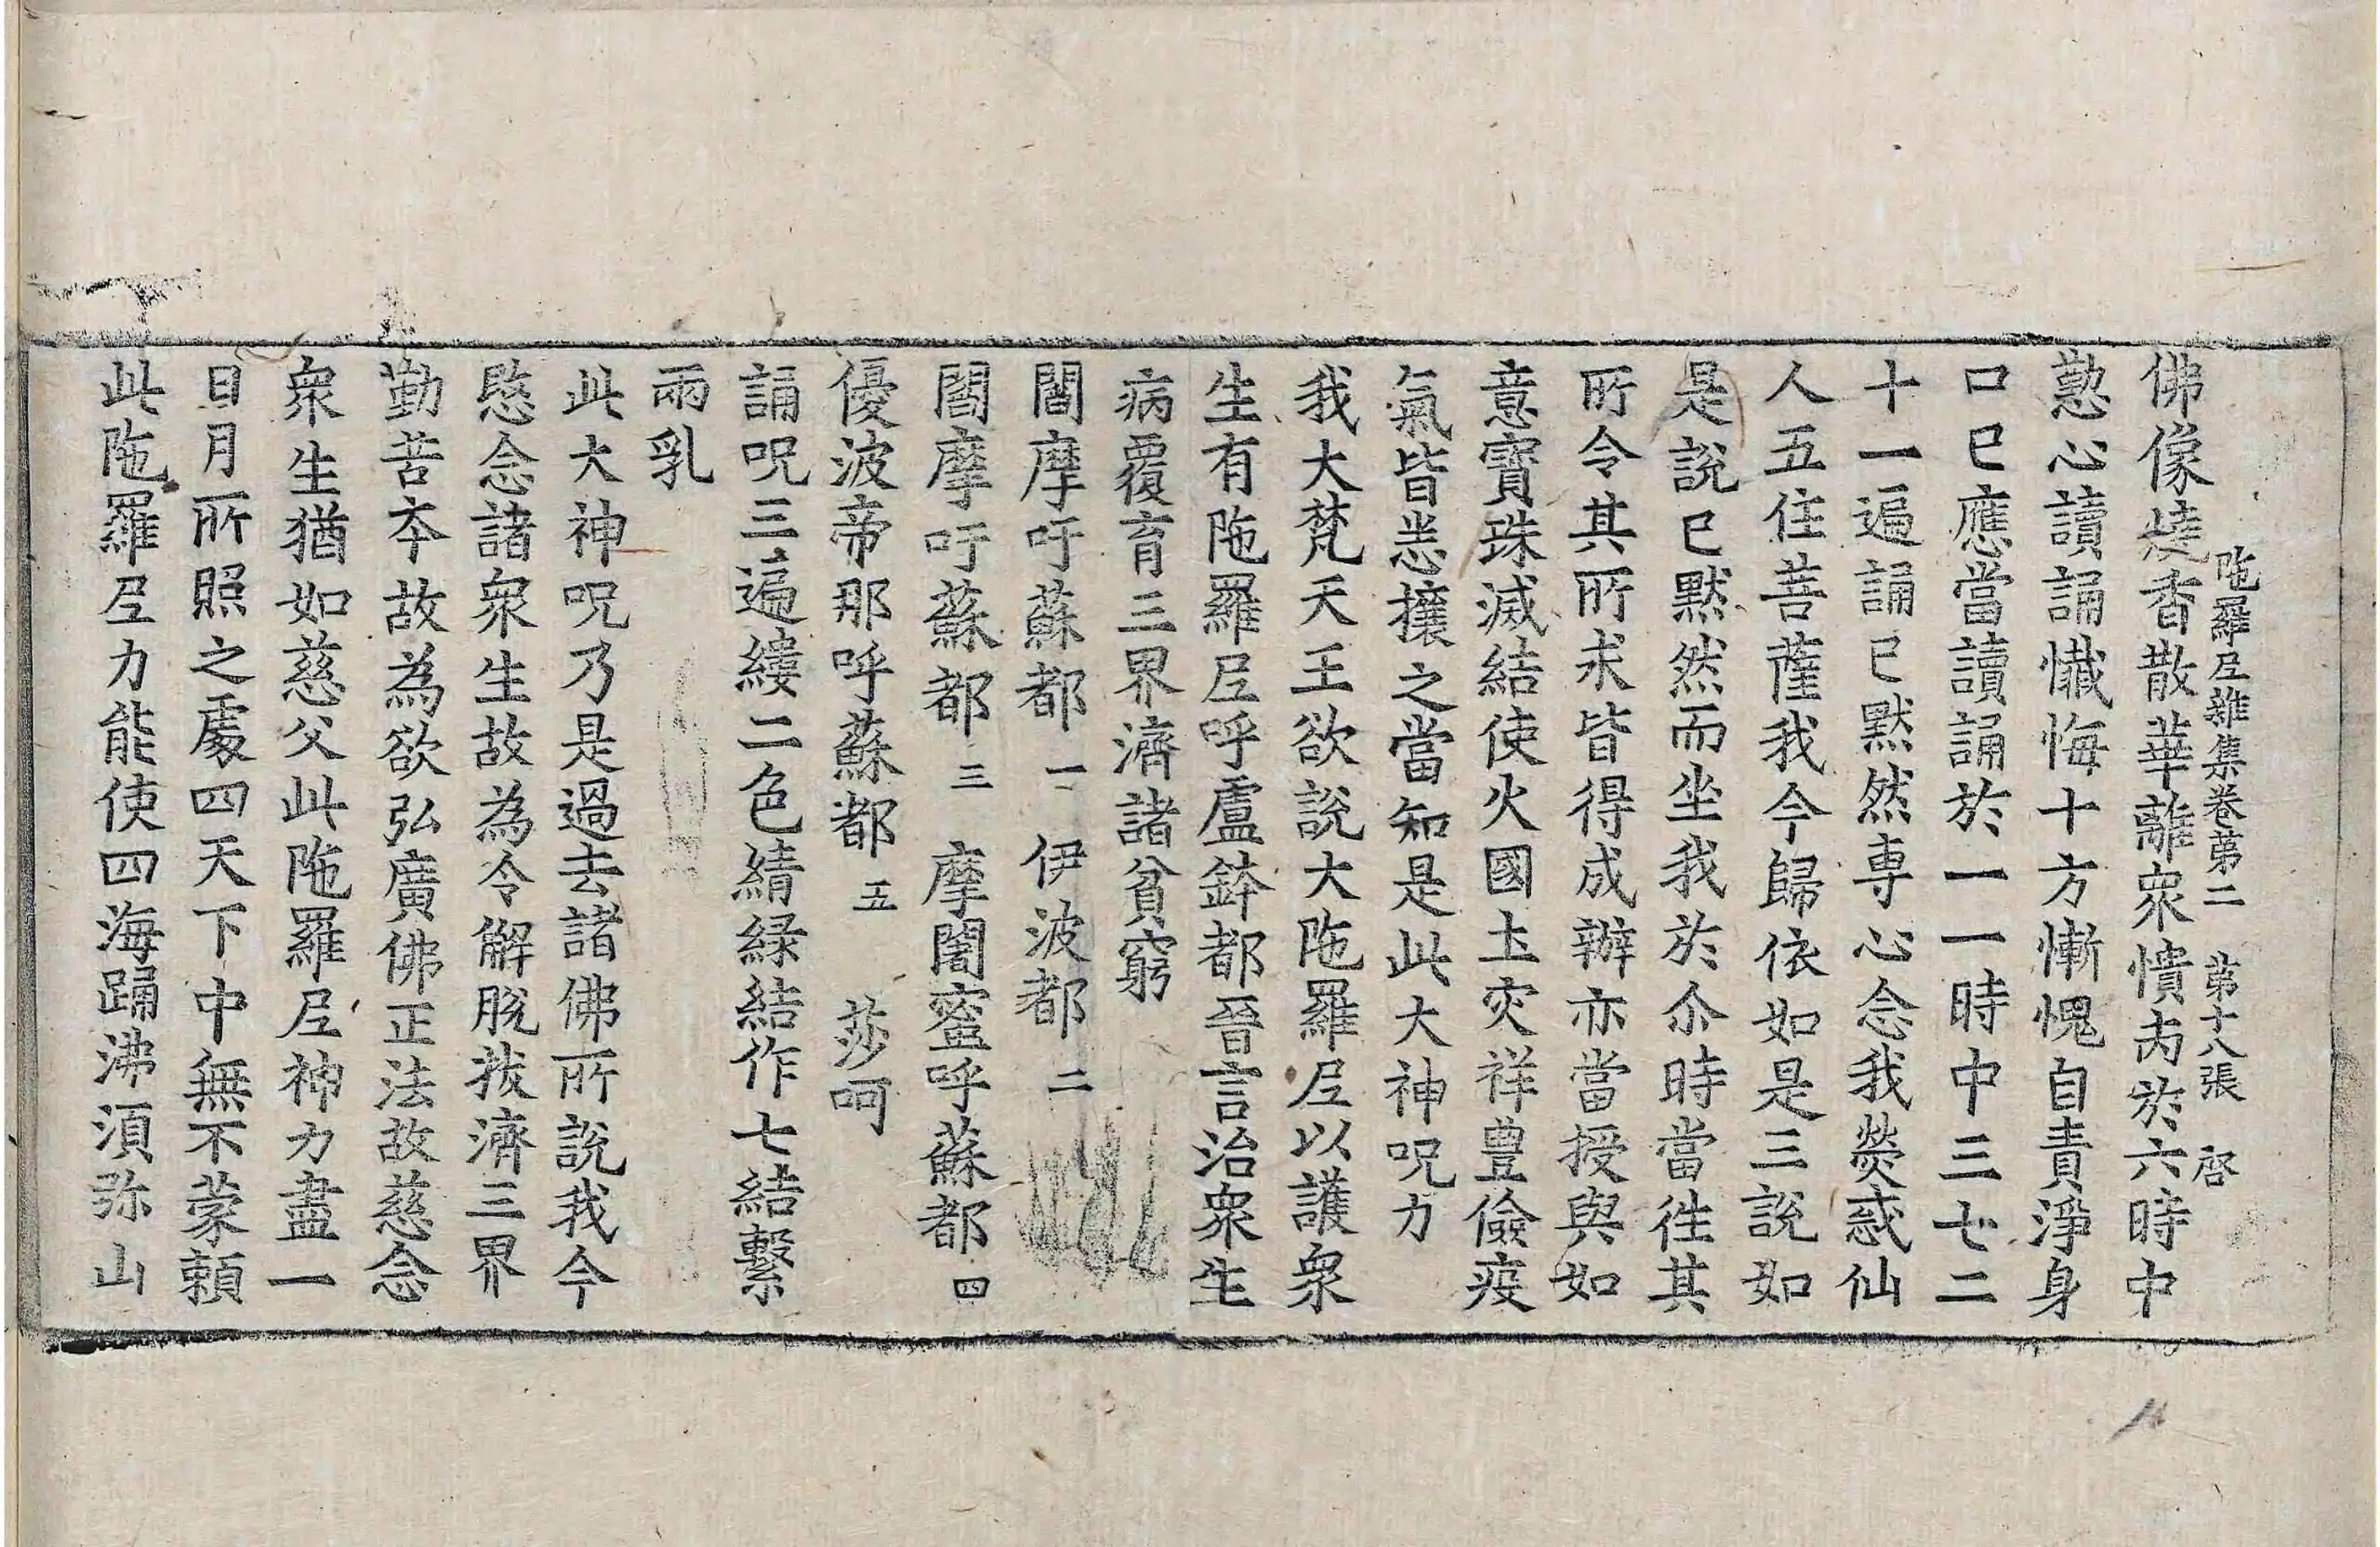 陁羅尼雜集卷苐二　苐十八張　啓
佛像燒香散華離衆憒丙於六時中
懃心讀誦懺悔十方慚愧自責淨身
口已應當讀誦於一一時中三七二
十一遍誦已默然專心念我熒惑仙
人五住菩薩我今歸依如是三說如
是說已默然而坐我於尒時當徃其
所令其所求皆得成辦亦當授與如
意寶珠滅結使火國土灾祥豊儉疫
氣皆悉攘之當知是此大神呪力
我大梵天王欲說大陁羅尼以護衆
生有陁羅尼呼盧鉢都晉言治衆生
病覆育三界濟諸貧窮
閻摩吁蘇都一 伊波都二
閻摩吁蘇都三 摩闍蜜呼蘇都四
優波帝那呼蘇都五 莎呵
誦呪三遍縷二色綪緑結作七結繫
兩乳
此大神呪乃是過去諸佛所說我今
愍念諸衆生故為令解脫拔濟三界
勤苦夲故為欲弘廣佛正法故慈念
衆生猶如慈父此陁羅尼神力盡一
日月所照之處四天下中無不蒙頼
此陁羅尼力能使四海踊沸湏弥山